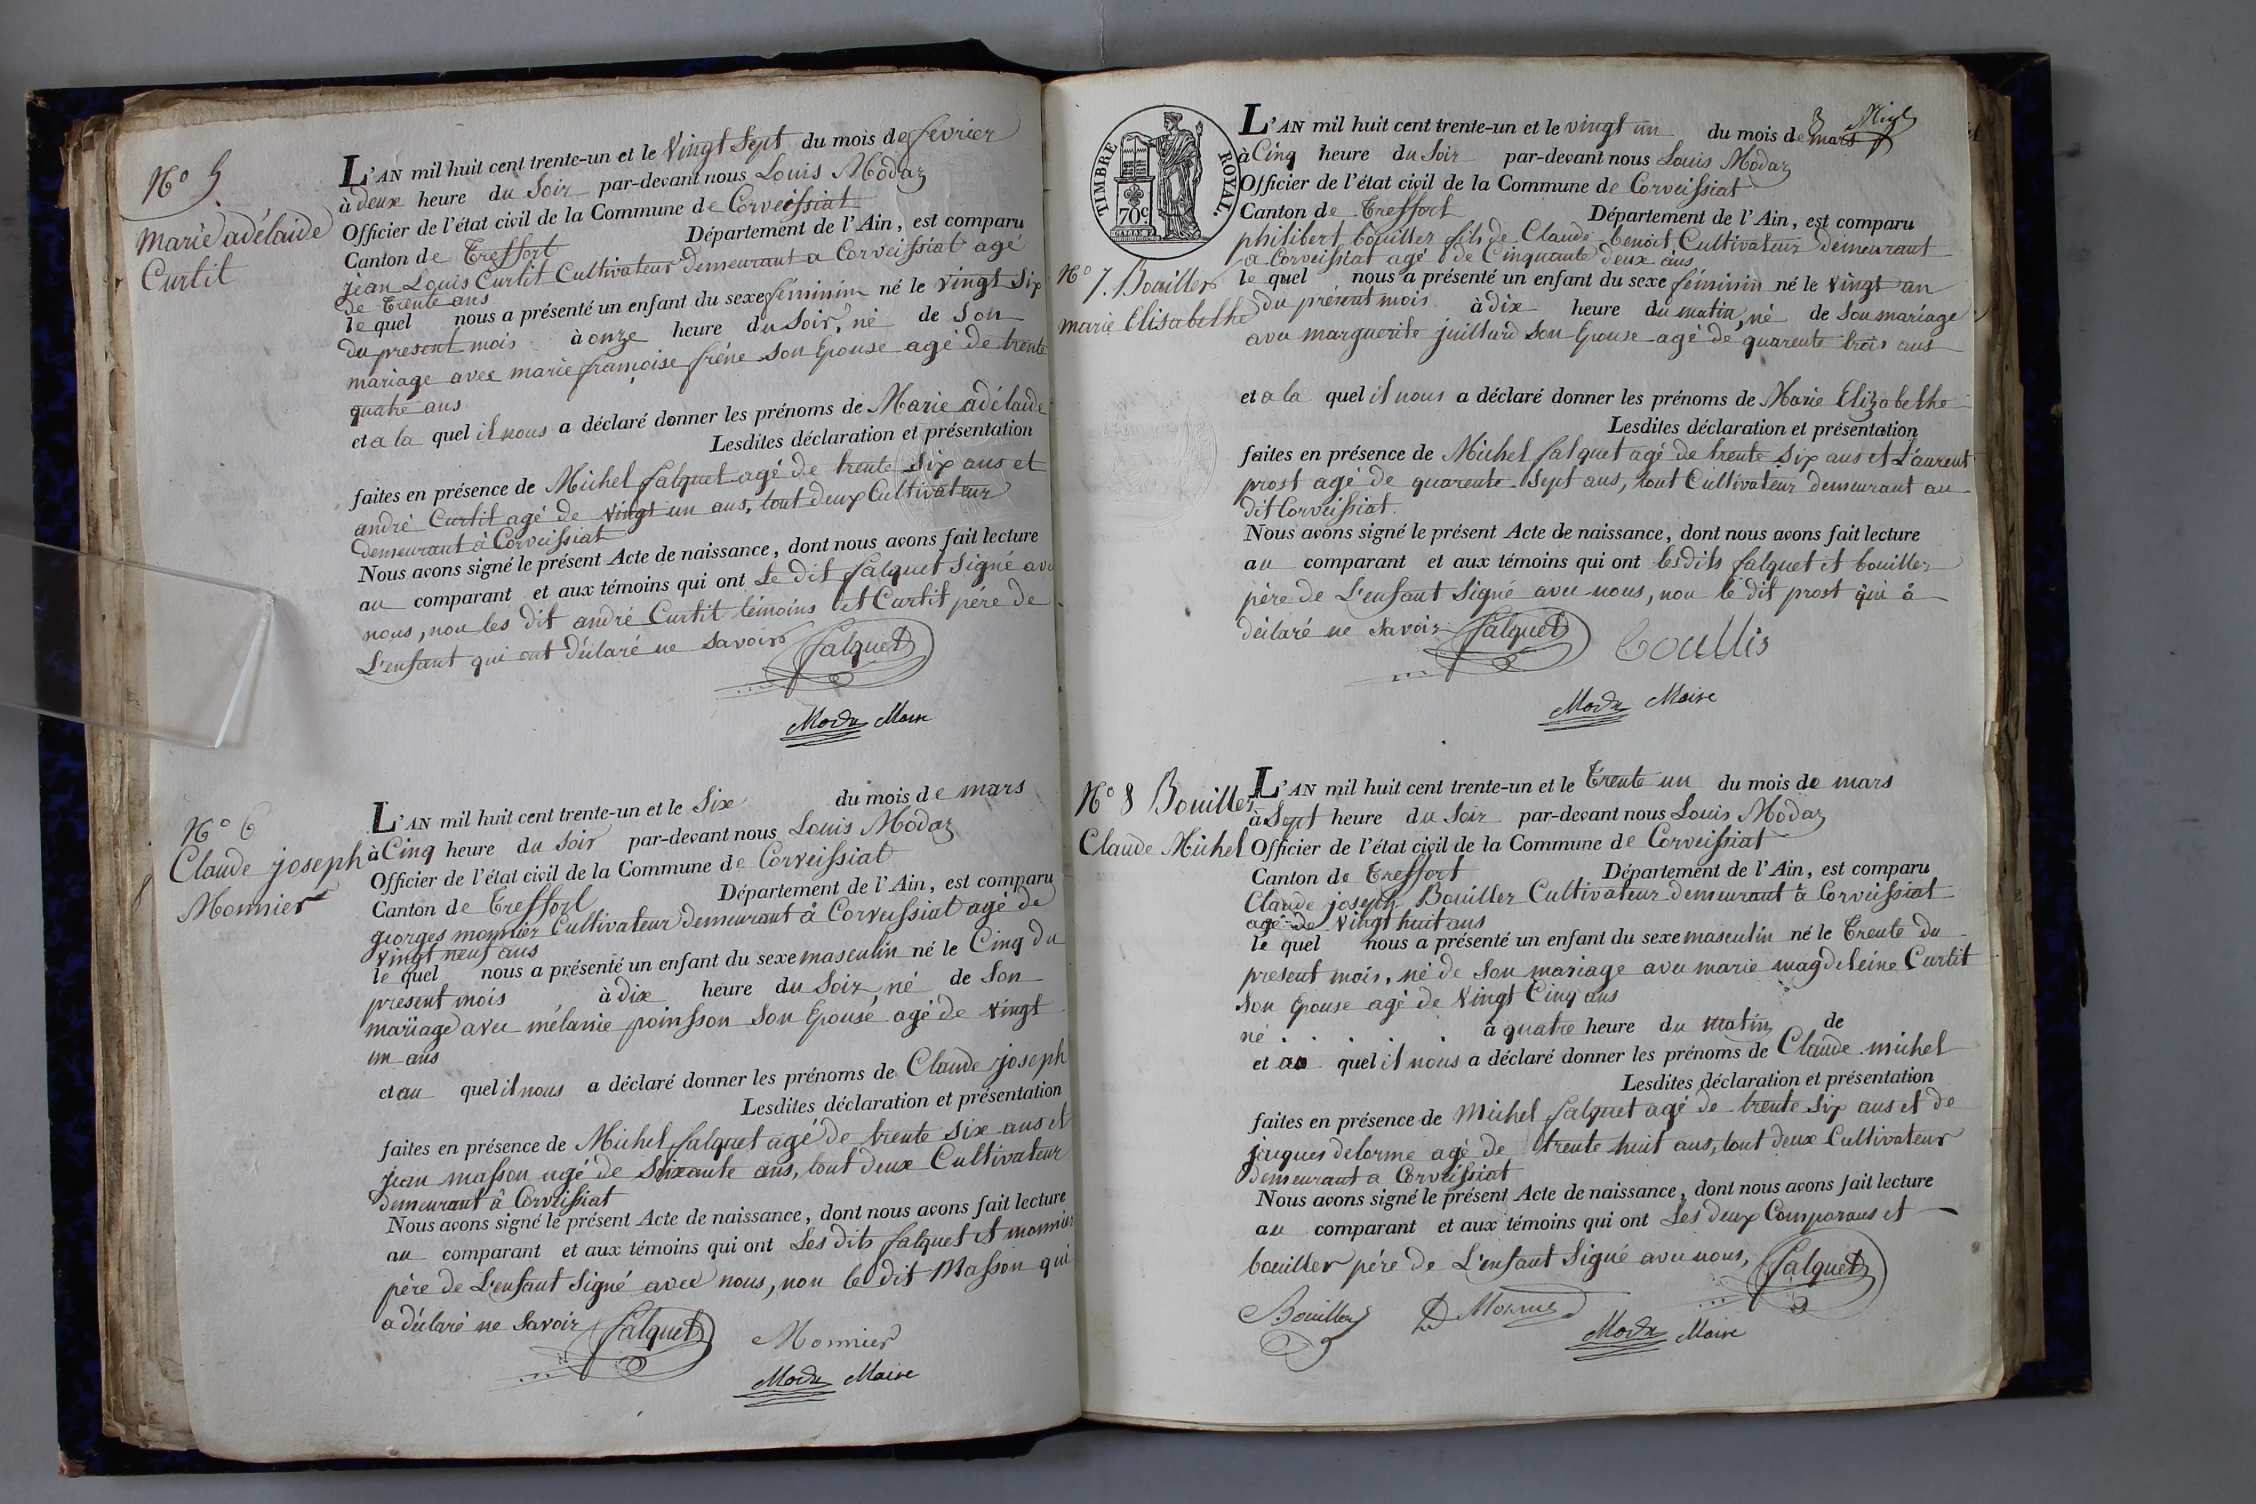 N° 5.
Marie adélaide
Curtit
L'AN mil huit cent trente-un et le vingt Sept du mois de fevrier
à deux heure du Soir par-devant nous Louis Modaz
Officier de l'état civil de la Commune de Corveissiat
Canton de Treffort Département de l'Ain, est comparu
jean Louis Curtit Cultivateur demeurant a Corveissiat agé
de trente ans
le quel nous a présenté un enfant du sexe féminin né le vingt Six
du present mois à onze heure du Soir, né de Son
mariage avec marie françoise frêne Son Epouse agé de trente
quatre ans
et a la quel il nous a déclaré donner les prénoms de Marie adélaide
Lesdites déclaration et présentation
faites en présence de Michel falquet agé de trente Six ans et
andré Curtit agé de vingt un ans, tout deux Cultivateur
demeurant à Corveissiat
Nous avons signé le présent Acte de naissance, dont nous avons fait lecture
au comparant et aux témoins qui ont Le dit falquet Signé avec
nous, non les dit andré Curtit témoins et Curtit pére de
L'enfant qui ont déclaré ne Savoir falquet
Modaz Maire
N° 6
Claude joseph
Monnier
L'AN mil huit cent trente-un et le Six du mois de mars
à Cinq heure du Soir par-devant nous Louis Modaz
Officier de l'état civil de la Commune de Corveissiat
Canton de Treffort Département de l'Ain, est comparu
georges monnier Cultivateur demeurant à Corveissiat agé de
vingt neuf ans
le quel nous a présenté un enfant du sexe masculin né le Cinq du
present mois à dix heure du Soir, né de Son
mariage avec mélanie poinsson Son Epouse agé de vingt
un ans
et au quel il nous a déclaré donner les prénoms de Claude joseph
Lesdites déclaration et présentation
faites en présence de Michel falquet agé de trente Six ans et
jean masson agé de Soixante ans, tout deux Cultivateur
demeurant à Corveissiat
Nous avons signé le présent Acte de naissance, dont nous avons fait lecture
au comparant et aux témoins qui ont Les dits falquet et monnier
père de L'enfant Signé avec nous, non le dit Masson qui
a déclaré ne Savoir falquet Monnier
Modaz Maire
TIMBRE ROYAL.
70c
N° 7. Bouiller
marie Elisabethe
L'AN mil huit cent trente-un et le vingt un du mois de mars
à Cinq heure du Soir par-devant nous Louis Modaz
Officier de l'état civil de la Commune de Corveissiat
Canton de Treffort Département de l'Ain, est comparu
philibert bouiller fils de Claude benoit Cultivateur demeurant
a Corveissiat agé de Cinquante deux ans
le quel nous a présenté un enfant du sexe féminin né le vingt un
du présent mois à dix heure du matin, né de Son mariage
avec marguerite juillard Son Epouse agé de quarente trois ans
et a la quel il nous a déclaré donner les prénoms de Marie Elizabethe
Lesdites déclaration et présentation
faites en présence de Michel falquet agé de trente Six ans et Laurent
prost agé de quarente Sept ans, tout Cultivateur demeurant au
dit Corveissiat.
Nous avons signé le présent Acte de naissance, dont nous avons fait lecture
au comparant et aux témoins qui ont lesdits falquet et bouiller
père de L'enfant Signé avec nous, non le dit prost qui à
déclaré ne Savoir falquet
Modaz Maire
N° 8 Bouiller
Claude Michel
L'AN mil huit cent trente-un et le Trente un du mois de mars
à Sept heure du Soir par-devant nous Louis Modaz
Officier de l'état civil de la Commune de Corveissiat
Canton de Treffort Département de l'Ain, est comparu
Claude joseph Bouiller Cultivateur demeurant à Corveissiat
agé de vingt huit ans
le quel nous a présenté un enfant du sexe masculin né le Trente du
present mois, né de Son mariage avec marie magdeleine Curtit
Son Epouse agé de vingt Cinq ans
né à quatre heure du matin de
et au quel il nous a déclaré donner les prénoms de Claude michel
Lesdites déclaration et présentation
faites en présence de Michel falquet agé de trente Six ans et de
jaques delorme agé de trente huit ans, tout deux Cultivateur
demeurant a Corveissiat
Nous avons signé le présent Acte de naissance, dont nous avons fait lecture
au comparant et aux témoins qui ont Les deux Comparans et
bouiller pére de L'enfant Signé avec nous, falquet
Bouiller
Modaz Maire